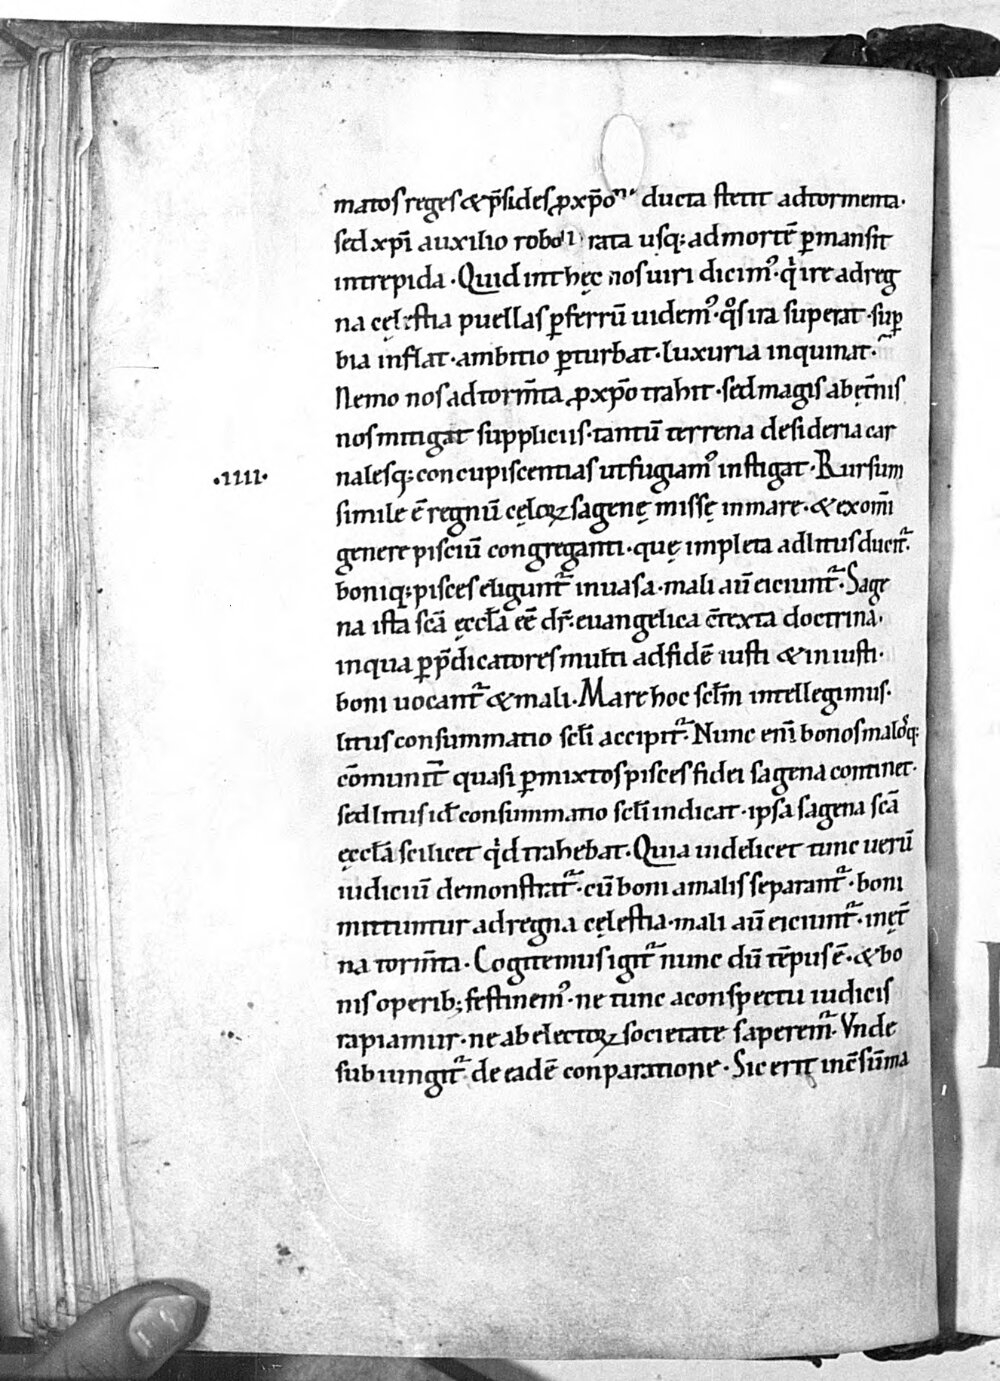 matos reges & p̄sides ꝓ xp̄o ducta stetit ad tormenta·
sed xp̄i auxilio roborata usq; ad mortē ꝑmansit
intrepida· Quid int̄ hęc nos uiri dicimꝰ· qͥ ire ad reg
na cęlestia puellas ꝑ ferrū uidemꝰ· qͦs ira superat· suꝑ
bia inflat· ambitio ꝑturbat· luxuria inquinat·
Nemo nos ad torm̄ta ꝓ xp̄o trahit· sed magis ab ęt̄nis
nos mitigat suppliciis· tantū terrena desideria car
nalesq; concupiscentias ut fugiamꝰ instigat· Rursum
·IIII· simile ē regnū cęloꝝ sagenę missę in mare· & ex om̄i
genere pisciū congreganti· quę impleta ad litus ducit᷑·
boniq; pisces eligunt᷑ in uasa· mali aū eiciunt᷑· Sage
na ista sc̄a ęccl̄a ee᷒ dr̄· euangelica c̄texta doctrina·
in qua ꝑ p̄dicatores multi ad fidē iusti & iniusti·
boni uocant᷑ & mali· Mare hoc sc̄lm intellegimus·
litus consummatio sc̄li accipit᷑· Nunc eni᷒ bonos malosq;
cōmunit̄ quasi ꝑmixtos pisces fidei sagena continet·
sed litus id᷒ consummatio sc̄li indicat· ipsa sagena sc̄a
ęccl̄a scilicet qͥd trahebat· Quia uidelicet tunc uerū
iudiciū demonstrat᷑· cū boni a malis separant᷑· boni
mittuntur ad regna cęlestia· mali aū eiciunt᷑· in ęt̄
na torm̄ta· Cogitemus igit᷑ nunc dū tēpus ē· & bo
nis operib; festinemꝰ· ne tunc a conspectu iudicis
rapiamur· ne ab electoꝝ societate saperem᷑· Vnde
subiungit᷑ de eadē conparatione· Sic erit in c̄sūma